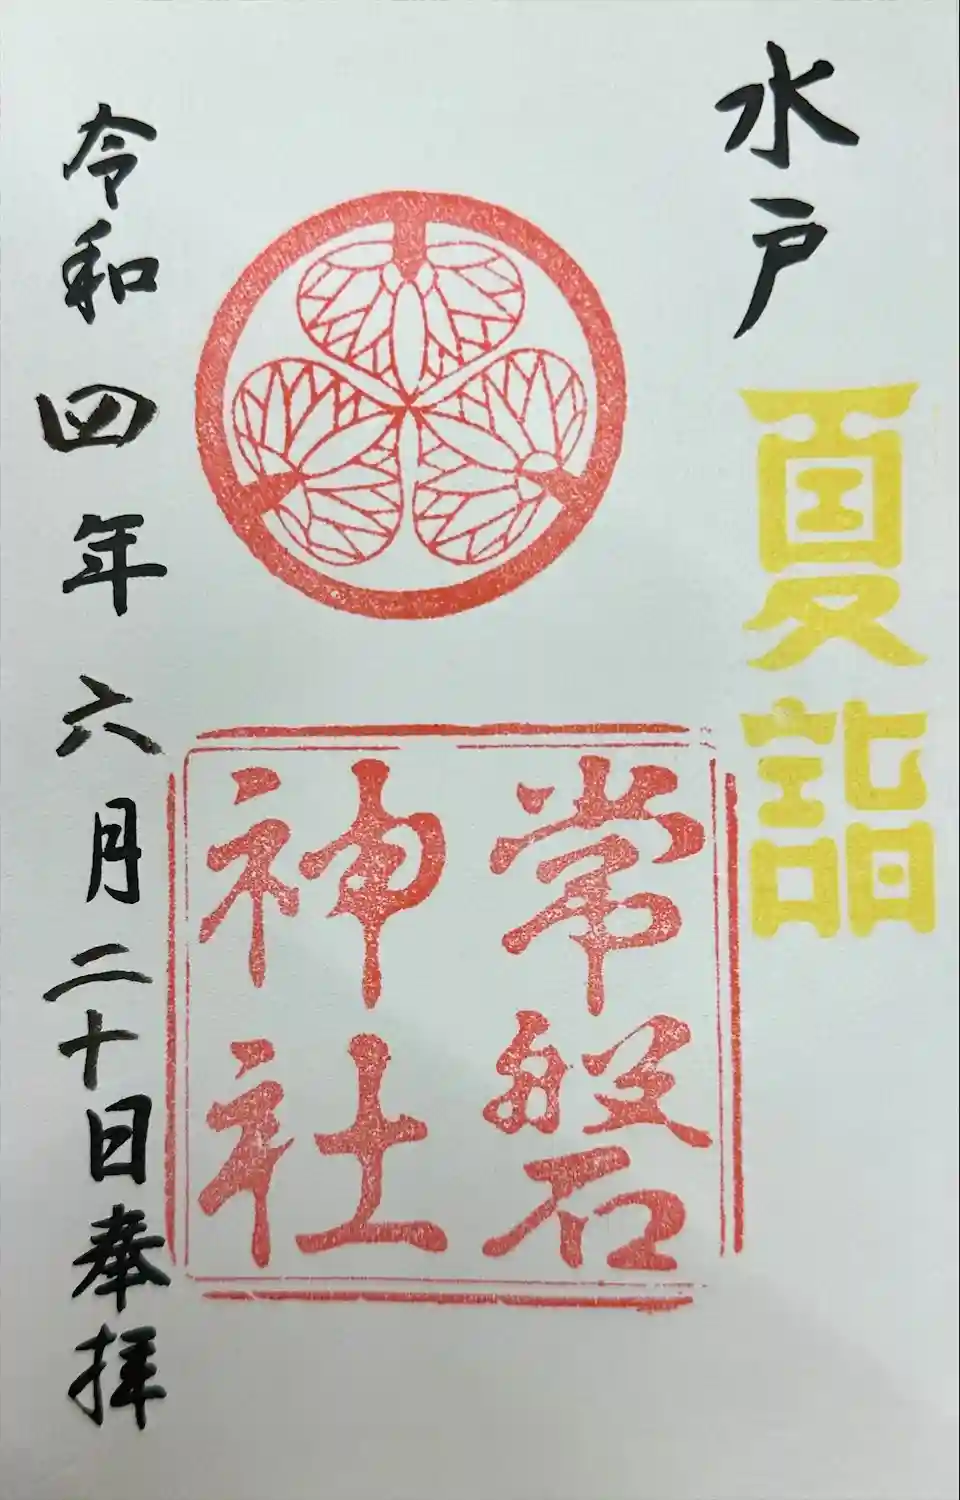 水戸
夏詣
常磐
神社
令和四年六月二十日奉拝